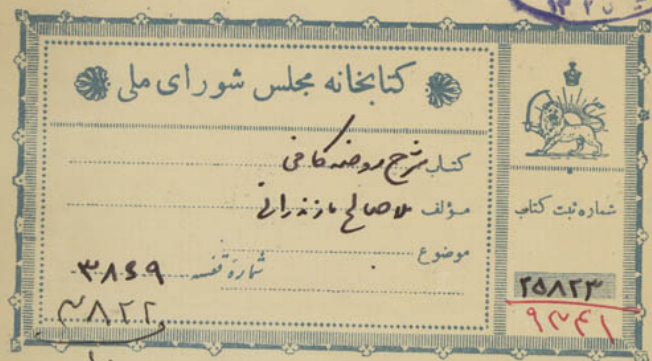 ۱۳۲۵
کتابخانه مجلس شورای ملی
کتاب شرح روضه کافی
مؤلف ملا صالح مازندرانی
موضوع
شماره قفسه ۳۸۶۹
۳۸۲۲
شماره ثبت کتاب
۲۵۸۲۳
۹۳۴۱